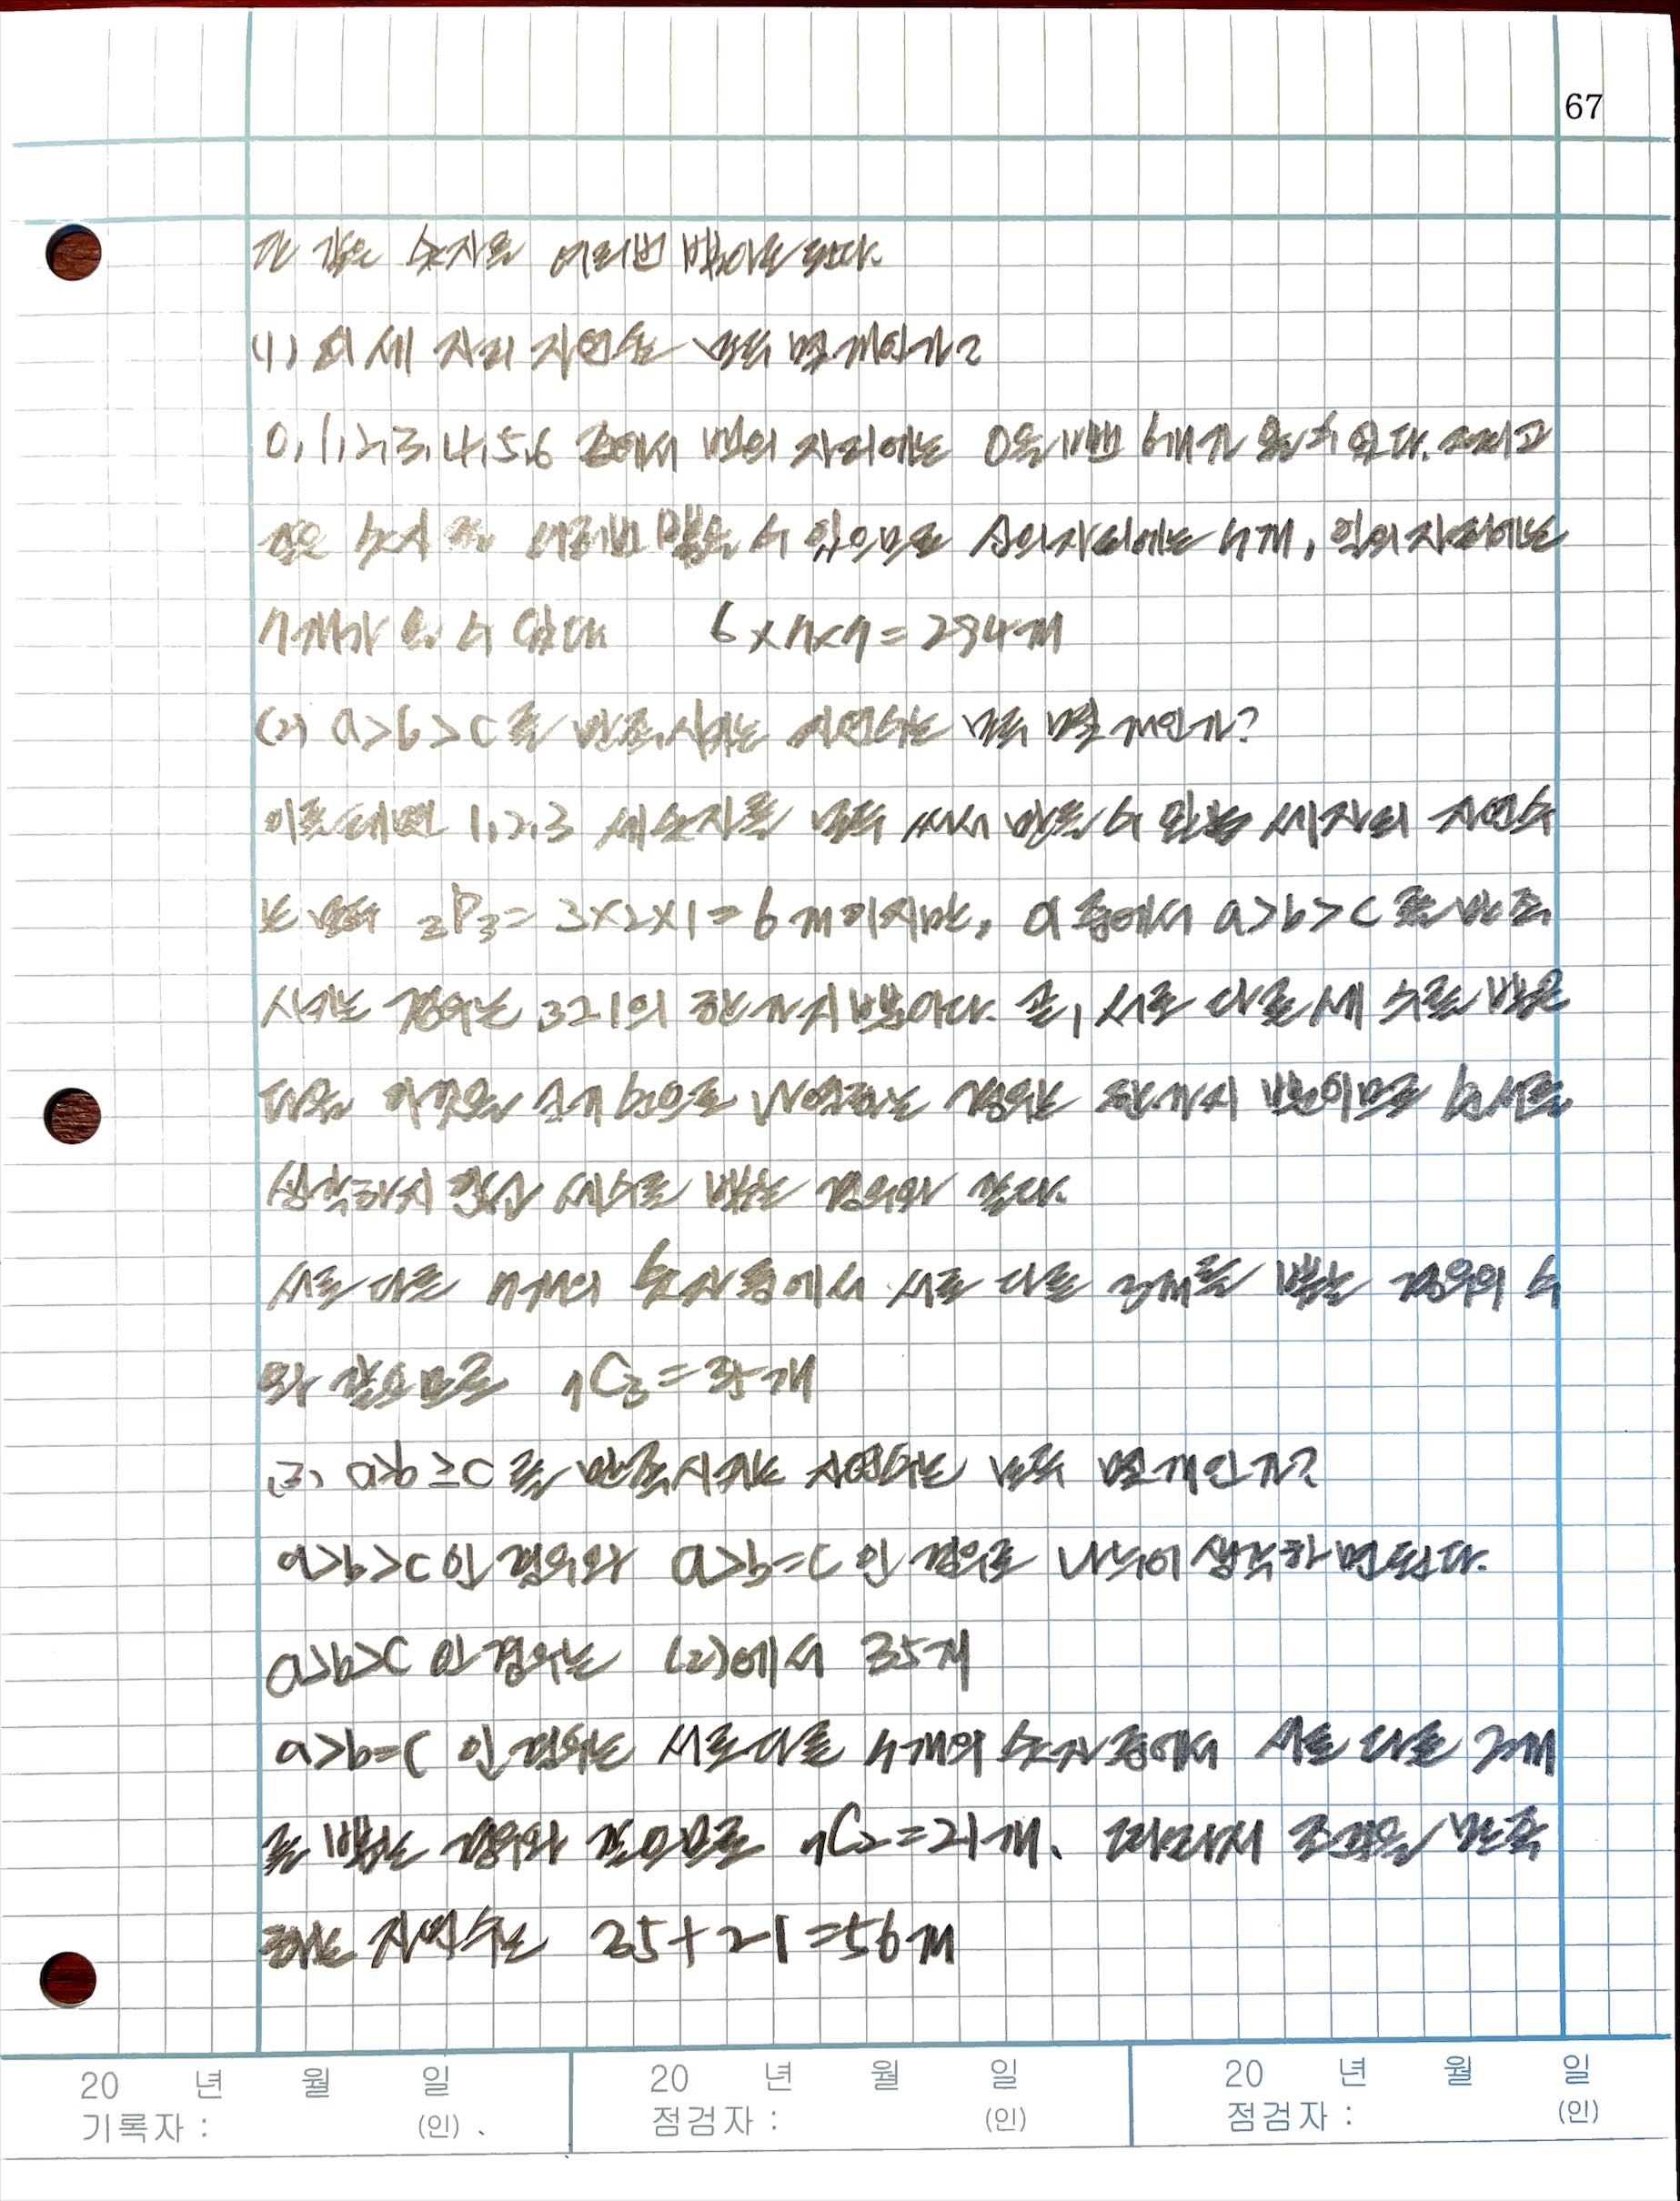 67
단 같은 숫자를 여러번 뽑아도 된다.
(1) 이 세 자리 자연수는 모두 몇 개인가?
0, 1, 2, 3, 4, 5, 6 중에서 백의 자리에는 0을 뺀 6개가 올 수 있다. 그리고
같은 숫자를 여러번 뽑을 수 있으므로 십의자리에는 7개, 일의자리에는
7개가 올 수 있다. 6×7×7=294개
(2) a>b>c를 만족시키는 자연수는 모두 몇 개인가?
이를테면 1, 2, 3 세 숫자를 모두 써서 만들 수 있는 세자리 자연수
는 모두 3P3=3×2×1=6개이지만, 이 중에서 a>b>c를 만족
시키는 경우는 321의 한 가지 뿐이다. 곧, 서로 다른 세 수를 뽑은
다음 이것을 크기 순으로 나열하는 경우는 한가지 뿐이므로 순서를
생각하지 않고 세수를 뽑는 경우와 같다.
서로 다른 7개의 숫자 중에서 서로 다른 3개를 뽑는 경우의 수
와 같으므로 7C3=35개
(3) a>b≥c를 만족시키는 자연수는 모두 몇 개인가?
a>b>c인 경우와 a>b=c인 경우로 나누어 생각하면 된다.
a>b>c인 경우는 (2)에서 35개
a>b=c인 경우는 서로 다른 7개의 숫자 중에서 서로 다른 2개
를 뽑는 경우와 같으므로 7C2=21개. 따라서 조건을 만족
하는 자연수는 35+21=56개
20 년 월 일 20 년 월 일 20 년 월 일
기록자 : (인) 점검자 : (인) 점검자 : (인)